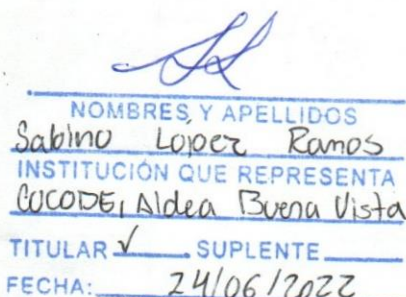 NOMBRES Y APELLIDOS
Sabino López Ramos
INSTITUCIÓN QUE REPRESENTA
COCODE, Aldea Buena Vista
TITULAR √ SUPLENTE
FECHA: 24/06/2022